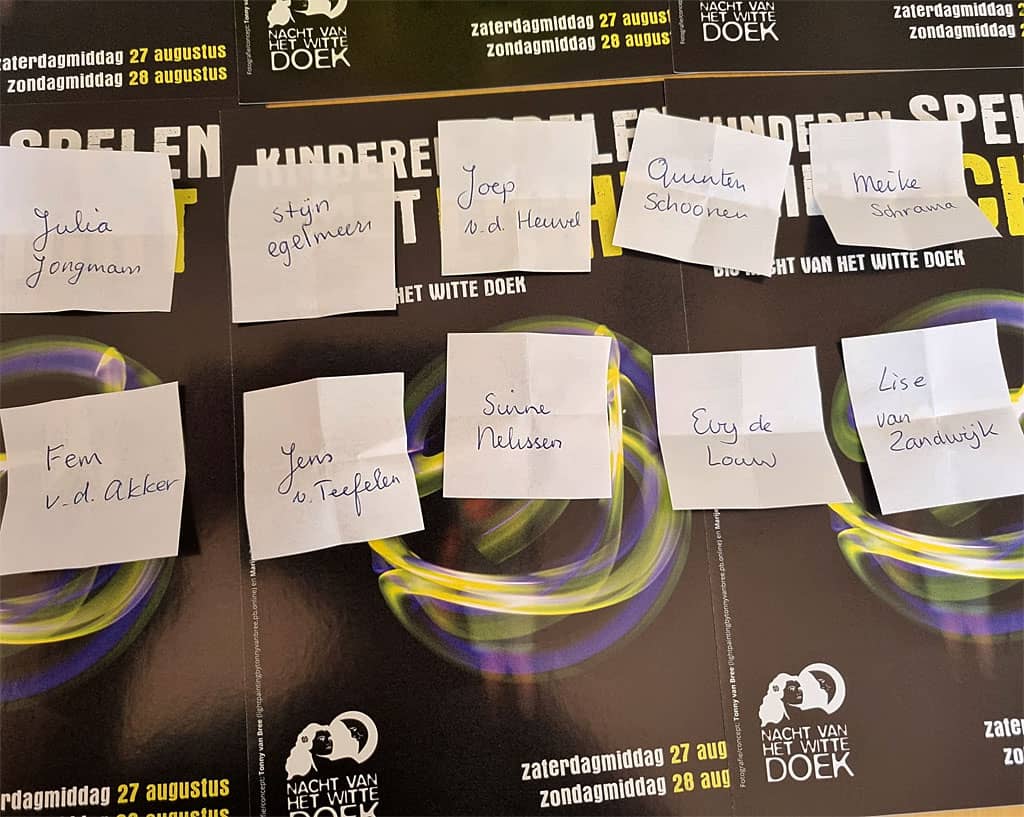 NACHT VAN
HET WITTE
DOEK
zaterdagmiddag 27 augustus
zondagmiddag 28 augustus
zaterdagmiddag 27 augustus
zondagmiddag 28 augustus
NACHT VAN
HET WITTE
DOEK
zaterdagmiddag
zondagmiddag
SPELEN
KINDEREN SPELEN
KINDEREN SPEL
Julia
Jongmans
Stijn
egelmeers
Joep
v.d. Heuvel
Quinten
Schoonen
Meike
Schrama
HET WITTE DOEK
NACHT VAN HET WITTE DOEK
Fem
v.d. Akker
Jens
v. Teefelen
Sinne
Nelissen
Evy de
Louw
Lise
van
Zandwijk
Fotografie/concept: Tonny van Bree (lightpaintingbytonnyvanbree.pb.online) en
Fotografie/concept: Tonny van Bree
NACHT VAN
HET WITTE
DOEK
rdagmiddag 27 augustus
zondagmiddag 28 augustus
NACHT VAN
HET WITTE
DOEK
zaterdagmiddag 27 aug
zondagmiddag 28 aug